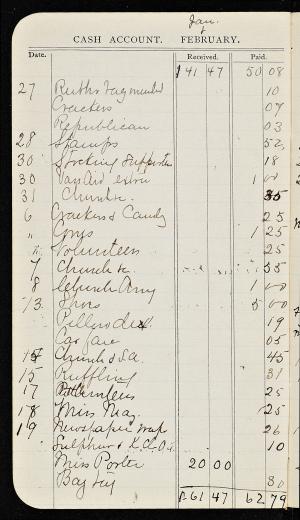 Jan.
&
CASH ACCOUNT. FEBRUARY.
Date. Received. Paid.
$41 47 50 08
27 Ruths Rug mended 10
Crackers 07
Republican 03
28 Stamps 52
30 Stocking supporters 18
30 extra 1 00
31 Church &c. 35
6 Crackers & Candy 25
" Corps 1 25
" Volunteers 25
7 Church &c 55
8 Church Army 1 00
13 Shoes 5 00
19
Car fare 05
14 Church & S.A. 45
15 Ruffling 31
17 25
18 Miss Mag. 25
19 Newspaper wrap 26
Sulphur & 10
Miss Porter 20 00
Bag 80
$61 47 62 79